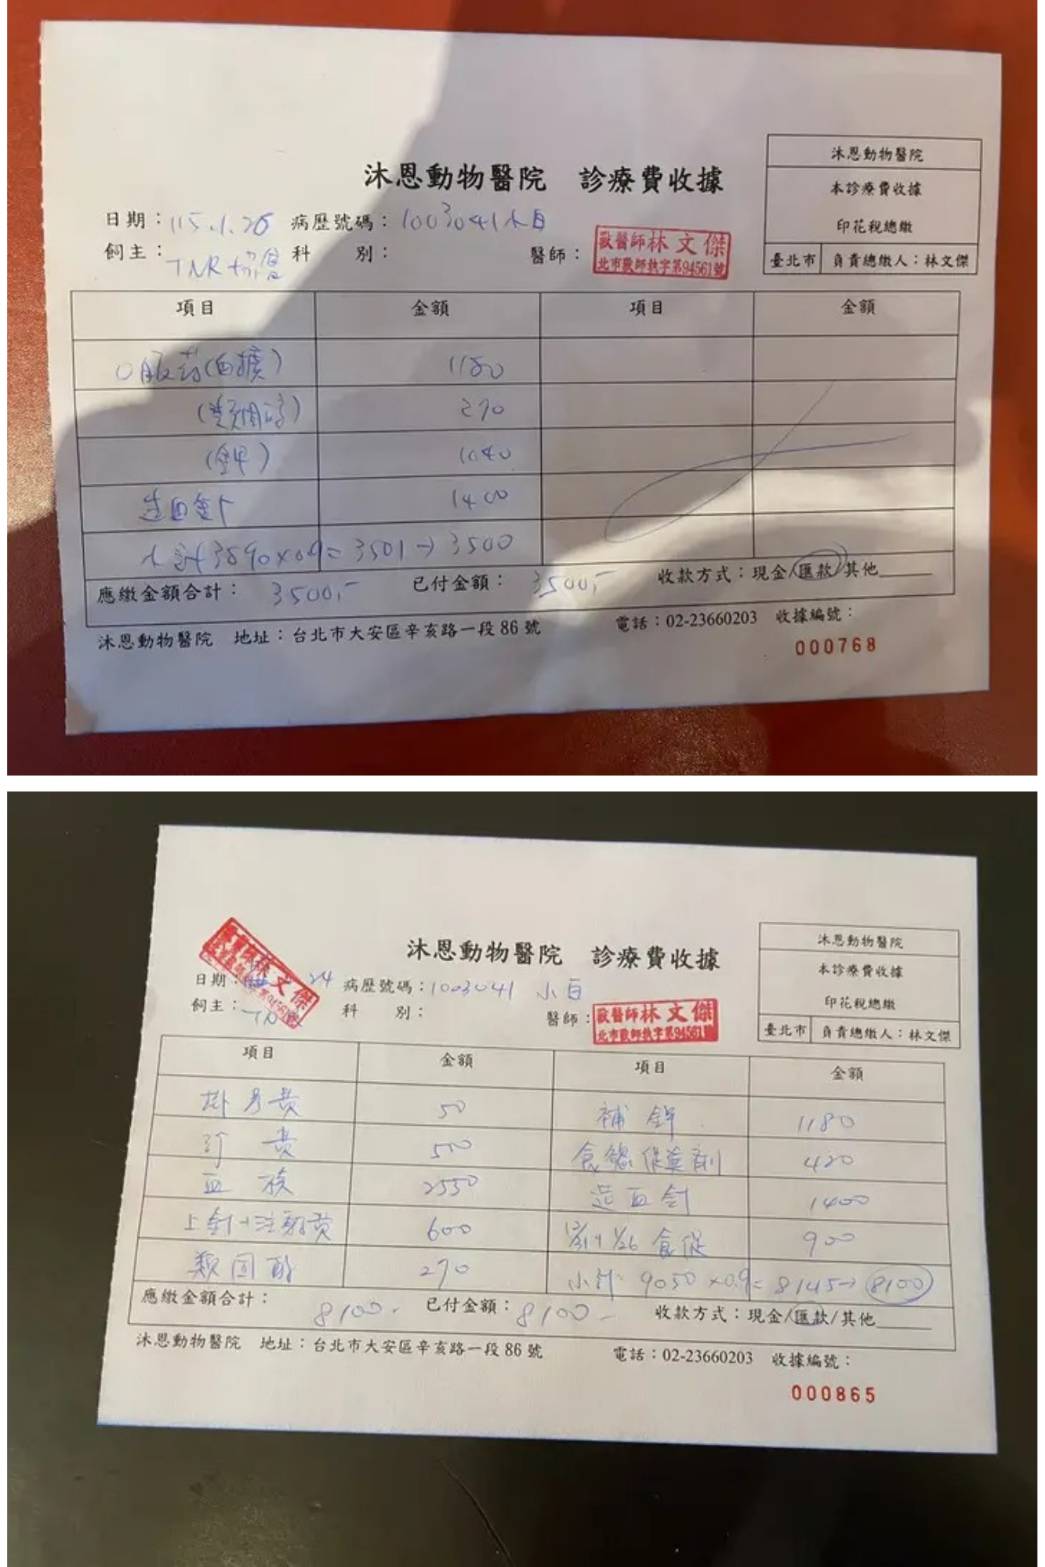 沐恩動物醫院 診療費收據
沐恩動物醫院
本診療費收據
印花稅總繳
臺北市 負責總繳人：林文傑
日期：115.1.26 病歷號碼：1003041小白
飼主：TNR 科 別： 醫師：獸醫師林文傑
北市獸師執字第94561號
項目 金額 項目 金額
口服药 1180
(類固醇) 270
(鉀) 1040
造血針 1400
小計3890x0.9=3501→3500
應繳金額合計：3500,- 已付金額：3500,- 收款方式：現金/匯款/其他
沐恩動物醫院 地址：台北市大安區辛亥路一段86號 電話：02-23660203 收據編號：
000768
沐恩動物醫院 診療費收據
沐恩動物醫院
本診療費收據
印花稅總繳
臺北市 負責總繳人：林文傑
日期： 24 病歷號碼：1003041 小白
飼主： 科 別： 醫師：獸醫師林文傑
北市獸師執字第94561號
林文傑
項目 金額 項目 金額
掛号費 50 補鉀 1180
診費 500 食慾促進劑 420
血檢 2550 造血針 1400
上針+注射費 600 1/26 食促 900
類固醇 270 小計: 9050x0.9=8145→8100
應繳金額合計：8100- 已付金額：8100- 收款方式：現金/匯款/其他
沐恩動物醫院 地址：台北市大安區辛亥路一段86號 電話：02-23660203 收據編號：
000865